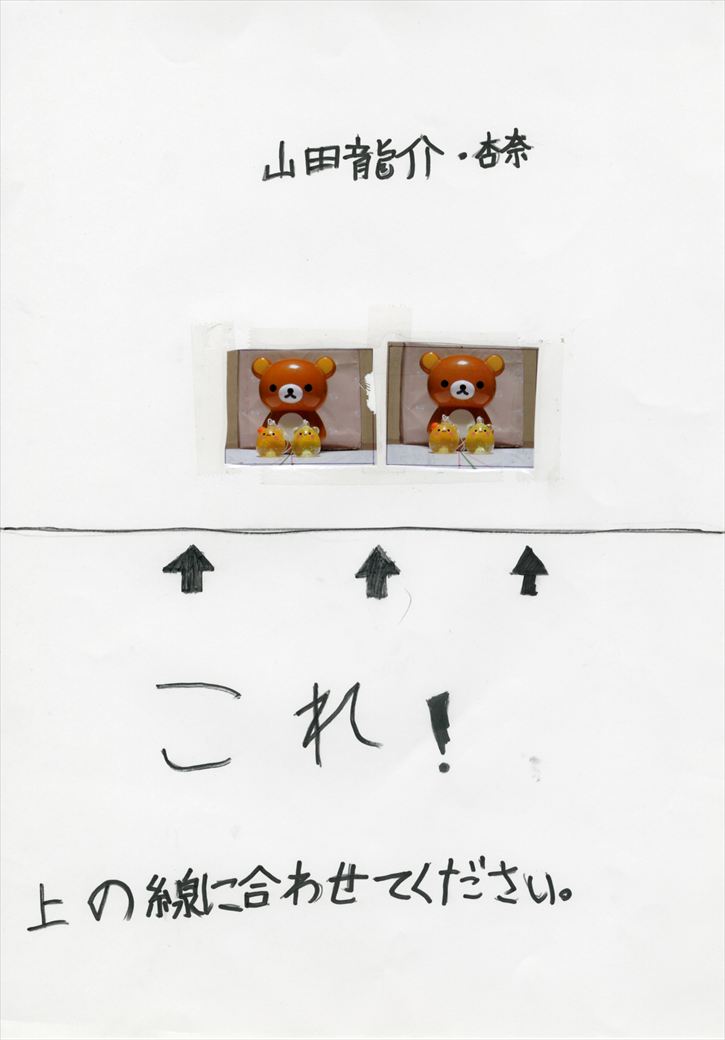 山田龍介・杏奈
これ!
上の線に合わせてください。